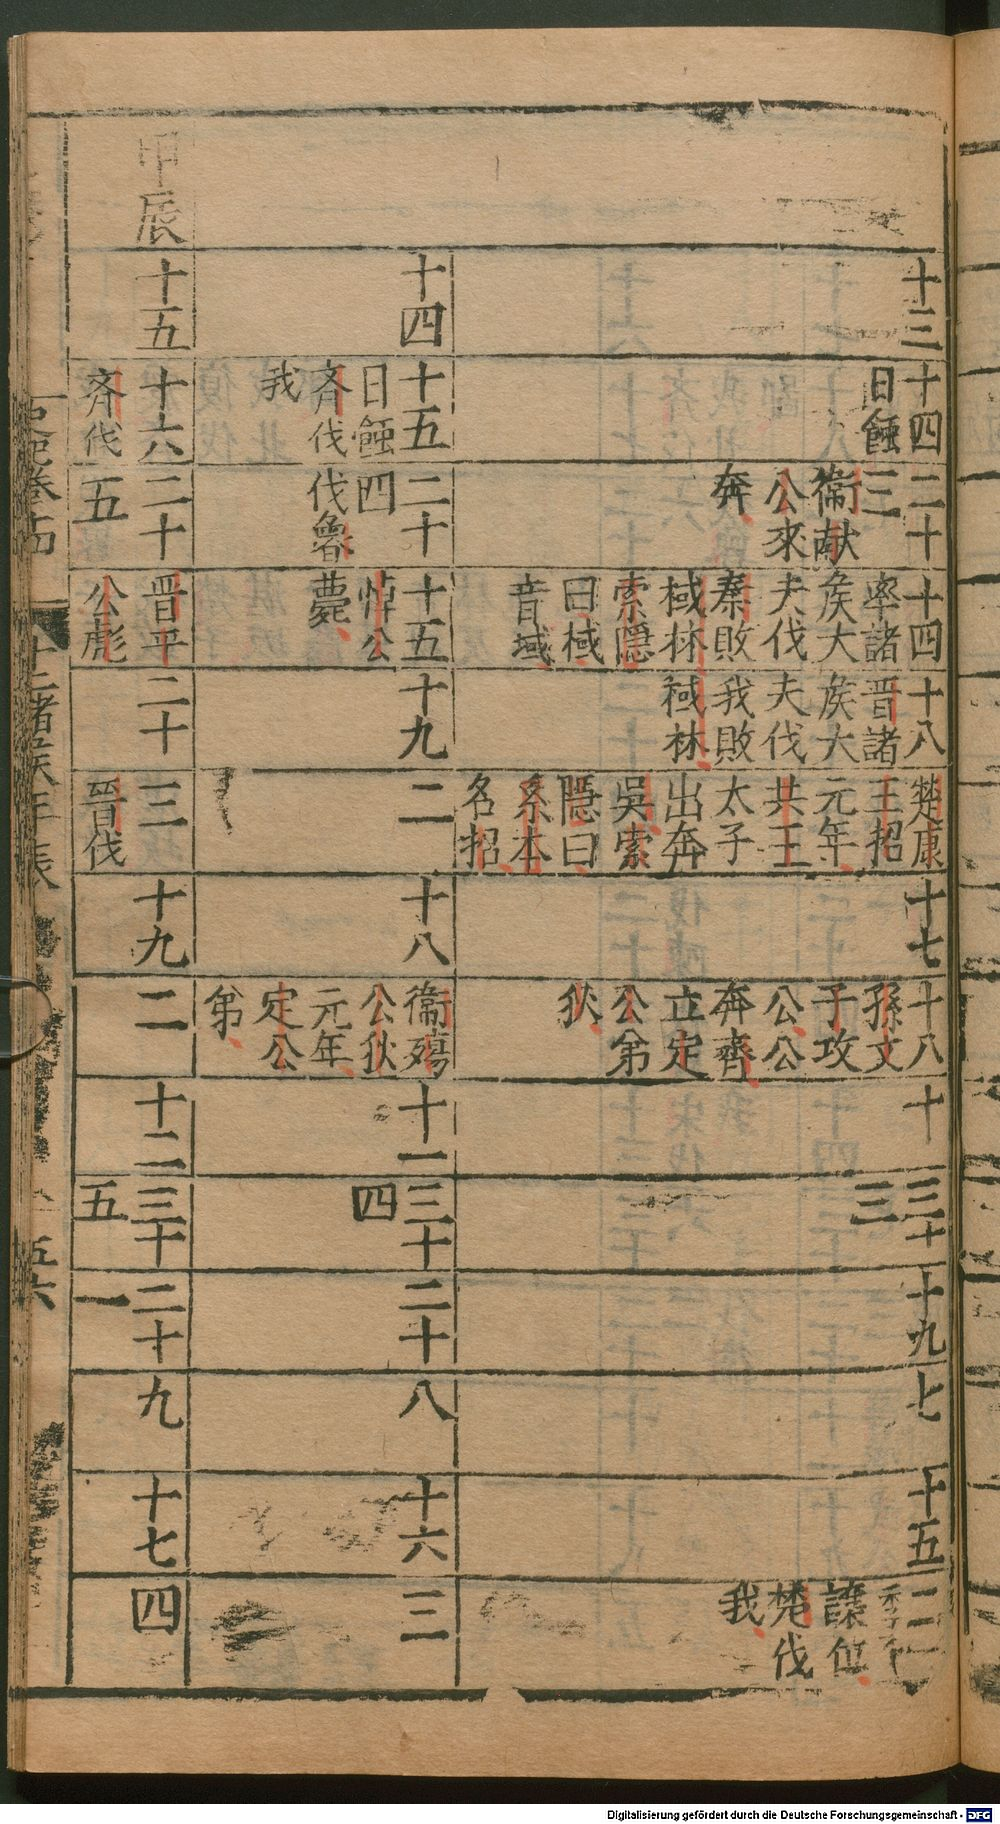 十三
十四
日蝕
二十
三
衞献
公來
奔
十四
率諸
矦大
夫伐
秦敗
棫林
索隱
曰棫
音域
十八
晋諸
矦大
夫伐
我敗
棫林
楚康
王招
元年
共王
太子
出奔
吳索
隱曰
系本
名招
十七
十八
孫文
子攻
公公
奔齊
立定
公弟
狄
十
三十
三
十九
七
十五
二
讓位
楚伐
我
十四
十五
日蝕
齊伐
我
二十
四
伐魯
十五
悼公
薨
十九
二
十八
衞殤
公狄
元年
定公
弟
十一
三十
四
二十
八
十六
三
甲辰
十五
十六
齊伐
二十
五
晋平
公彪
二十
三
晋伐
十九
二
十二
三十
五
二十
一
九
十七
四
史記卷十四
十二諸矦年表
五六
Digitalisierung gefördert durch die Deutsche Forschungsgemeinschaft - DFG